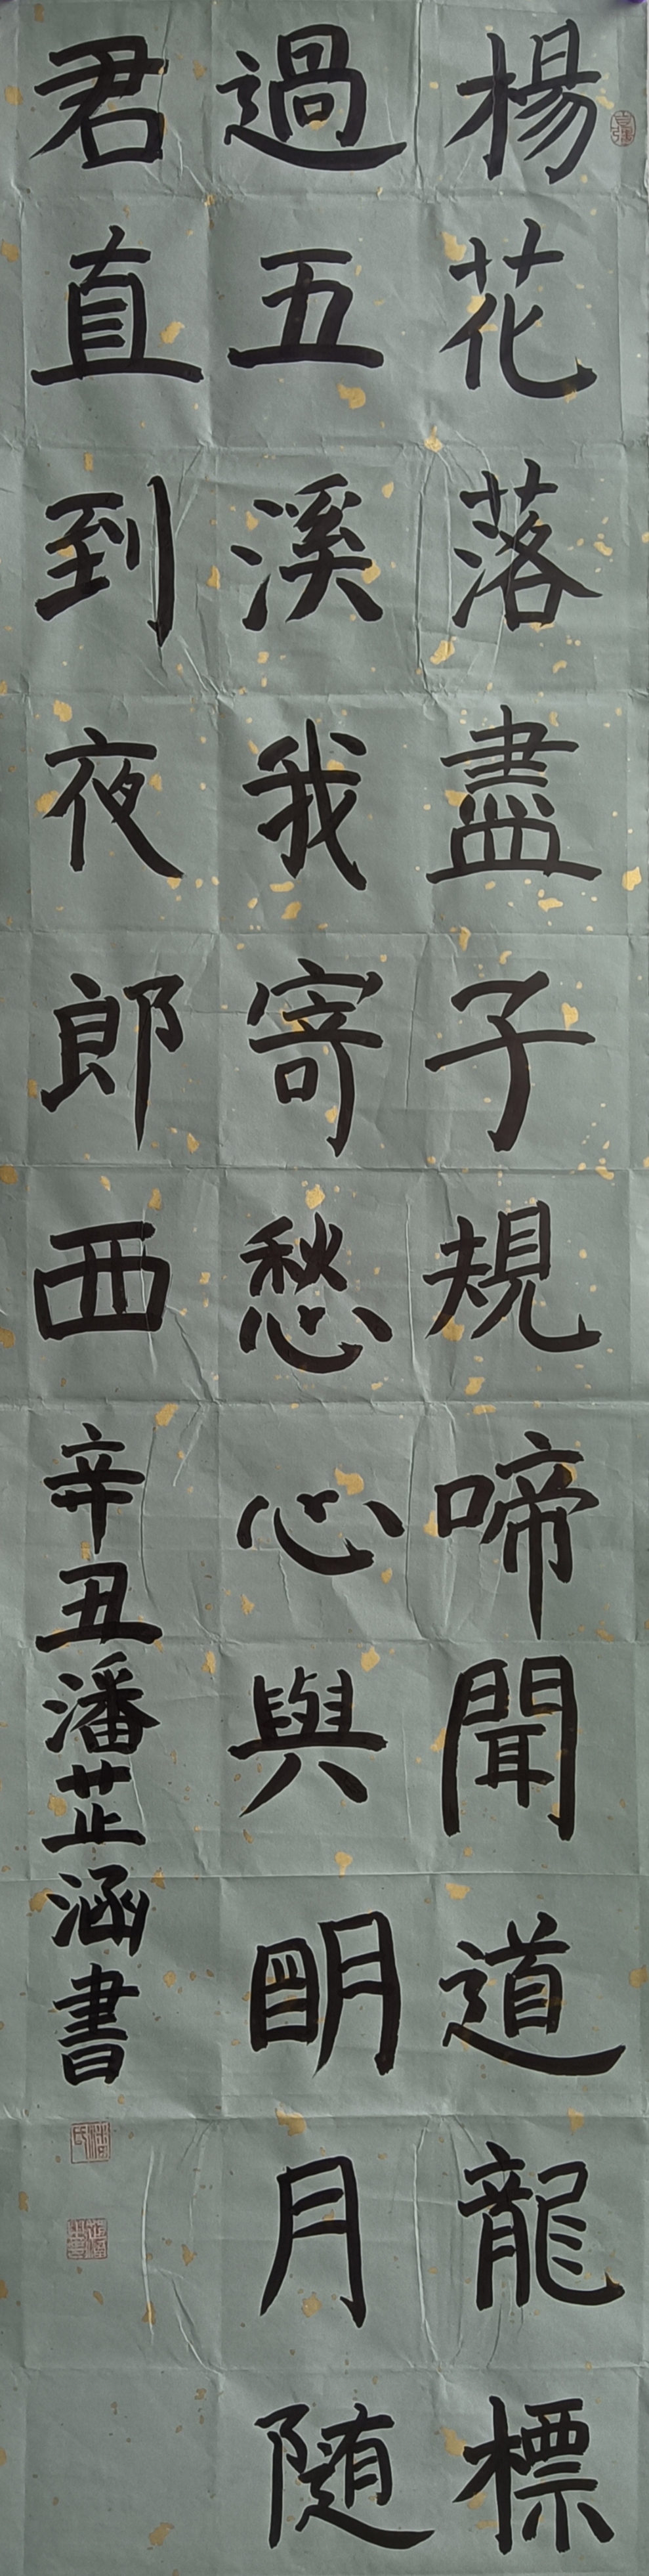 楊花落盡子規啼聞道龍標
過五溪我寄愁心與明月隨
君直到夜郎西辛丑潘芷涵書
潘氏